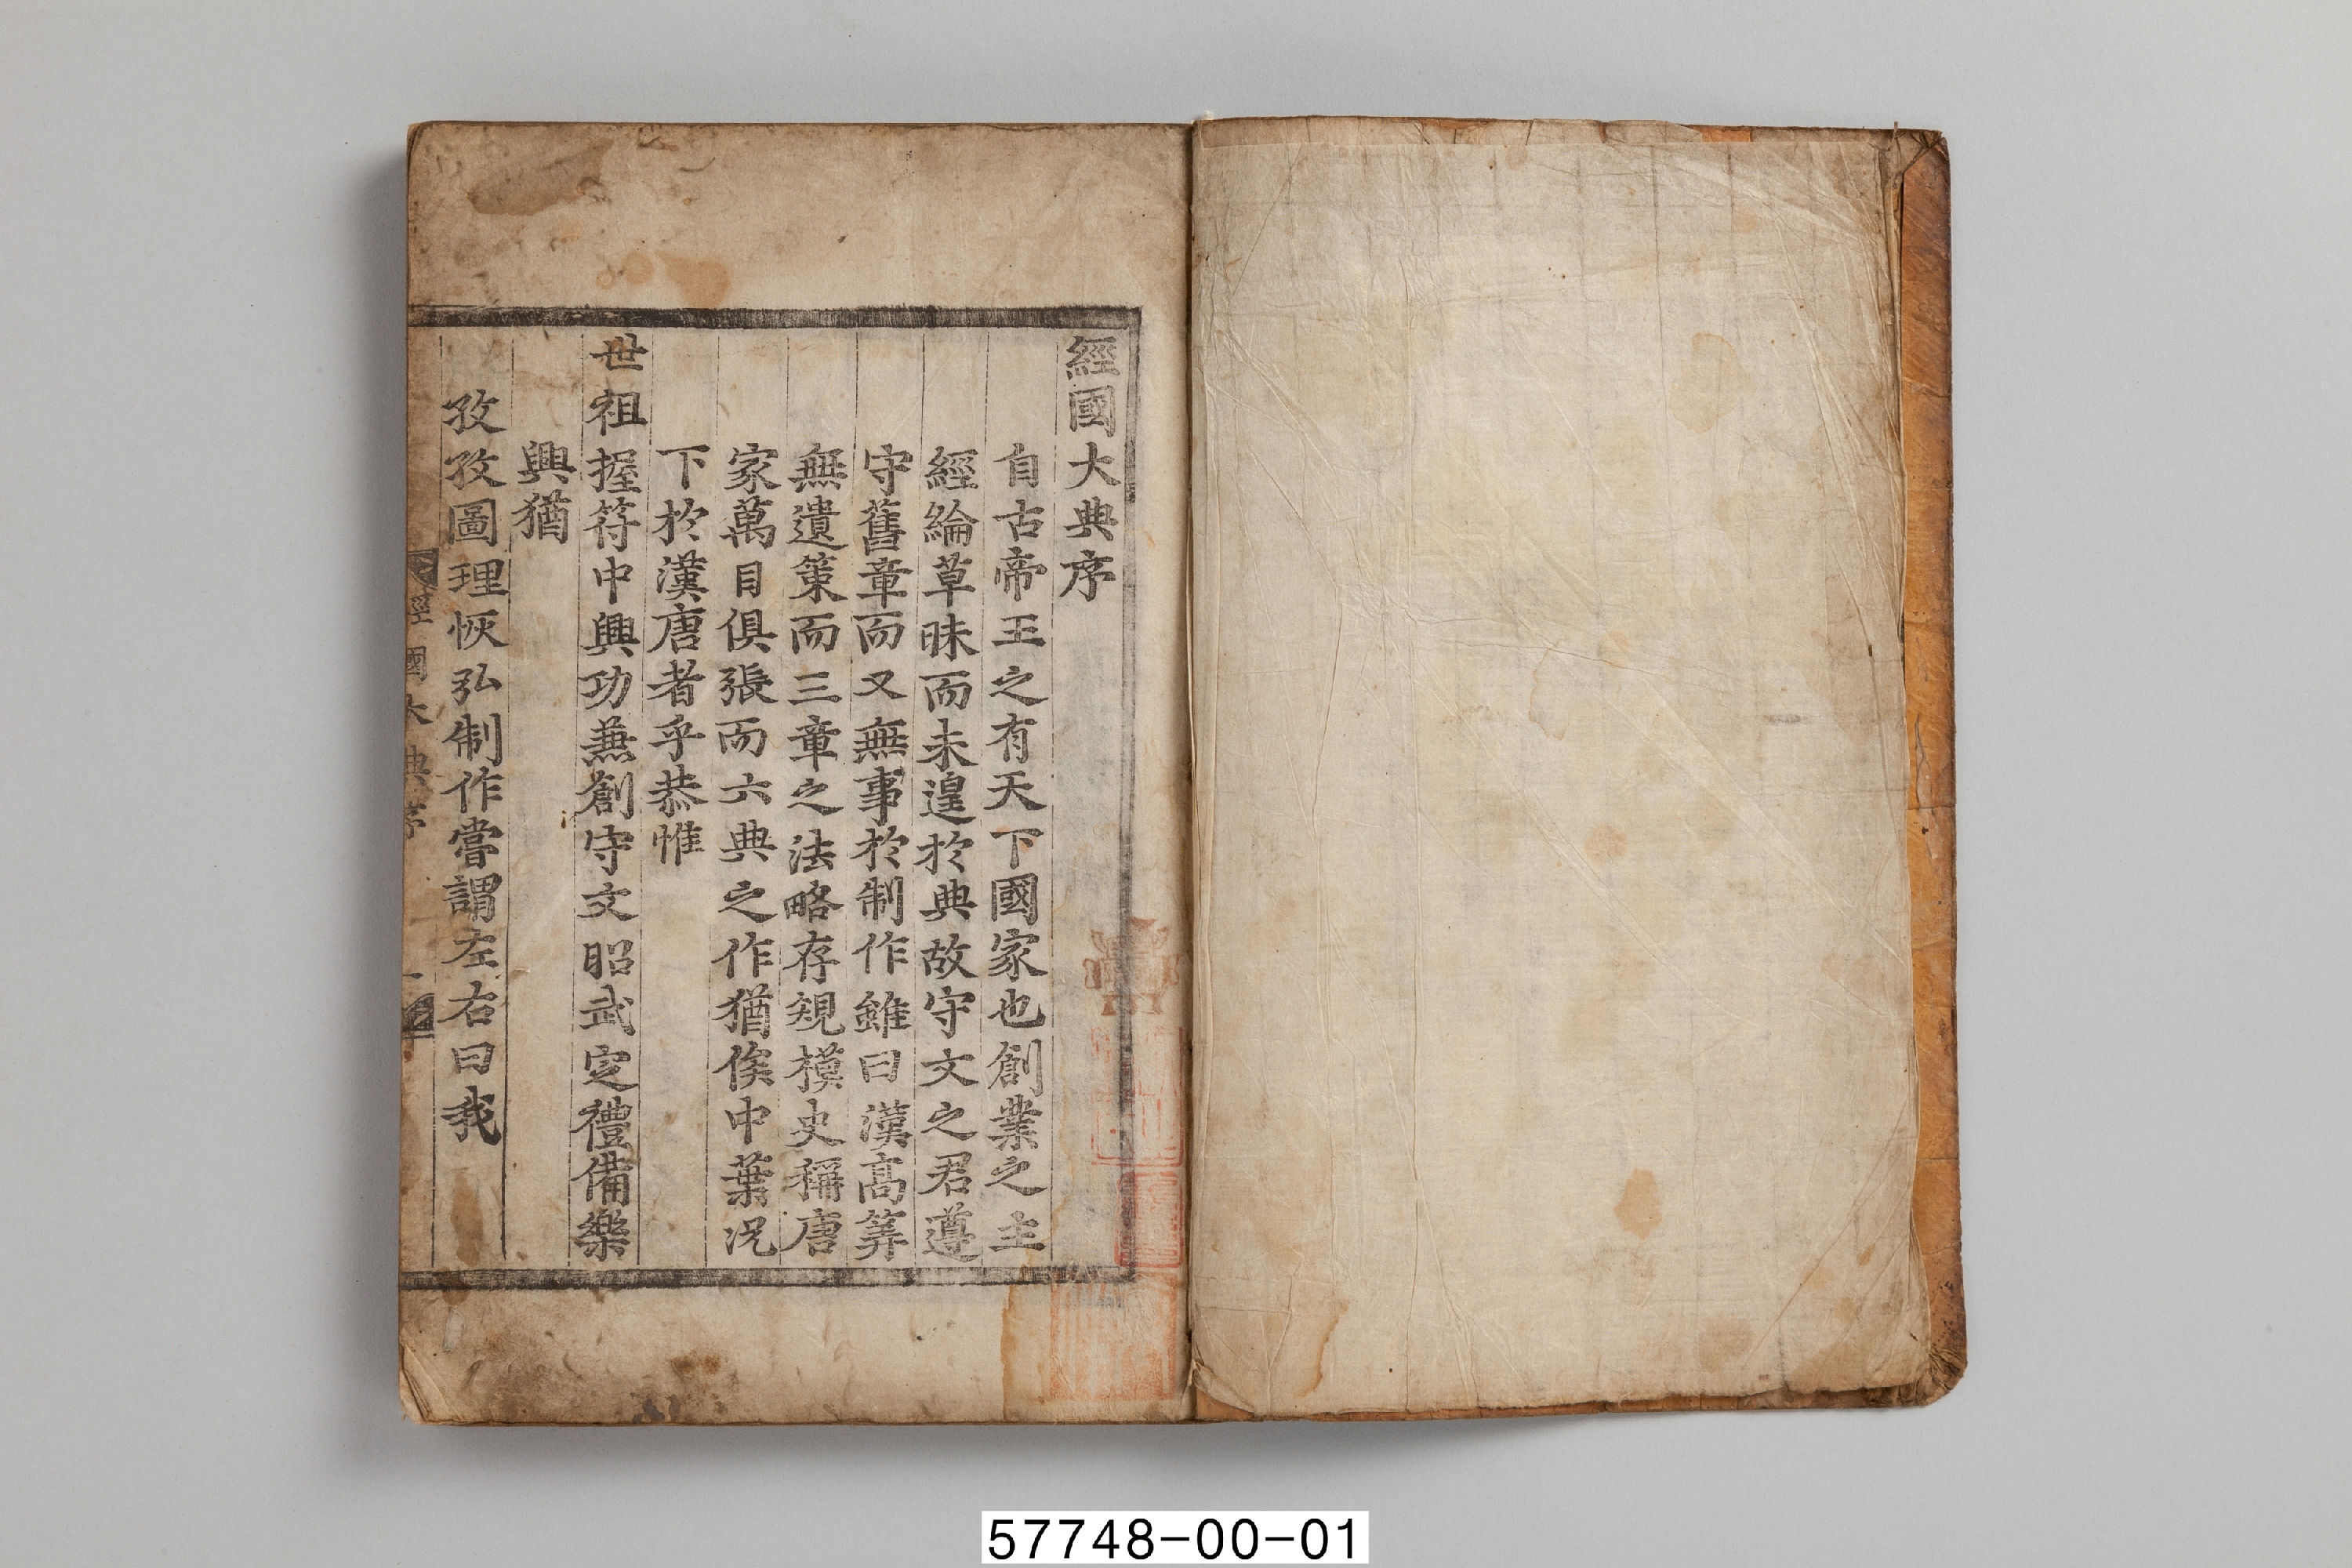 經國大典序
自古帝王之有天下國家也創業之主
經綸草昧而未遑於典故守文之君遵
守舊章而又無事於制作雖曰漢高筭
無遺策而三章之法略存規模史稱唐
家萬目俱張而六典之作猶俟中葉況
下於漢唐者乎恭惟
世祖握符中興功兼創守文昭武定禮備樂
興猶
孜孜圖理恢弘制作嘗謂左右曰我
經國大典序
一
57748-00-01